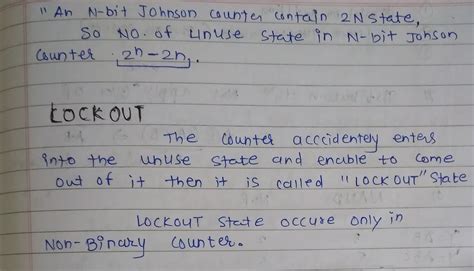 " An N-bit Johnson Counter Contain 2N State,
So NO. of Unuse State in N-bit Jonson
Counter 2ⁿ-2n.
LOCKOUT
The Counter acccidentely enters
into the unuse state and enable to come
out of it then it is called "LOCKOUT" State
LOCKOUT State occure only in
Non-Binary Counter.